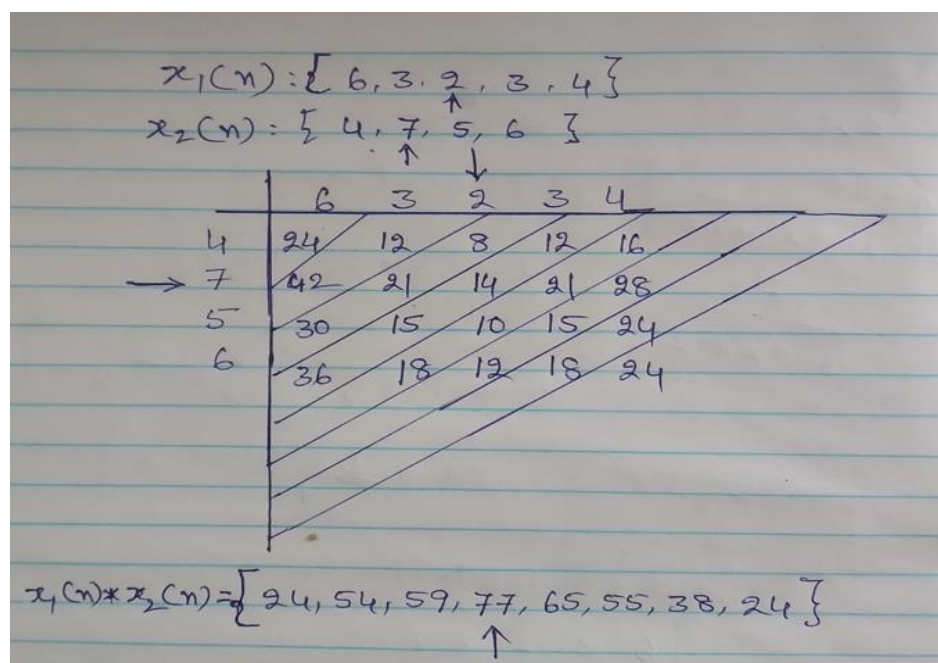 x₁(n) : { 6, 3, 2, 3, 4 }
↑
x₂(n) : { 4, 7, 5, 6 }
↑ ↓
6 3 2 3 4
4 24 12 8 12 16
→ 7 42 21 14 21 28
5 30 15 10 15 24
6 36 18 12 18 24
x₁(n)*x₂(n)={ 24, 54, 59, 77, 65, 55, 38, 24 }
↑